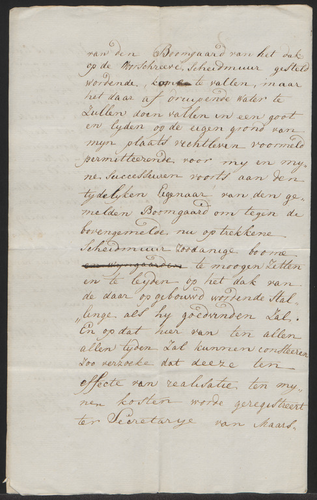 van den Boomgaard van het dak
op de voorschreeve Scheidmuur gesteld
wordende, komt te vallen, maar
het daar af druipende water te
zullen doen vallen in een goot
en lyden op de eigen grond van
myn plaats rechtleven voormeld
permitteerende voor my en my„
ne Successeuren voorts aan den
tydelyken Eigenaar van den ge„
melden Boomgaard om tegen de
bovengemelde nu optrekkene
Scheidmuur zodanige boome
te moogen zetten
en te leyden op het dak van
de daar op gebouwd wordende Stal„
„linge als hy goedvinden zal.
En op dat hier van ten allen
allen tyden zal kunnen consteeren
Zoo verzoeke dat deeze ten
effecte van realisatie ten my„
nen kosten worde geregistreert
ter Secretarye van Maars„